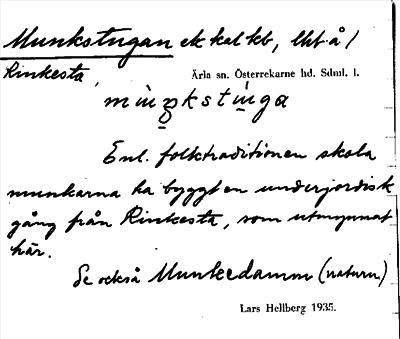 Munkstugan ek kal kb, lht å /
Rinkesta
Ärla sn. Österrekarne hd. Sdml. l.
mùŋkstùga
Enl. folktraditionen skola
munkarna ha byggt en underjordisk
gång från Rinkesta, som utmynnat
här.
Se också Munkedamm (naturn.)
Lars Hellberg 1935.